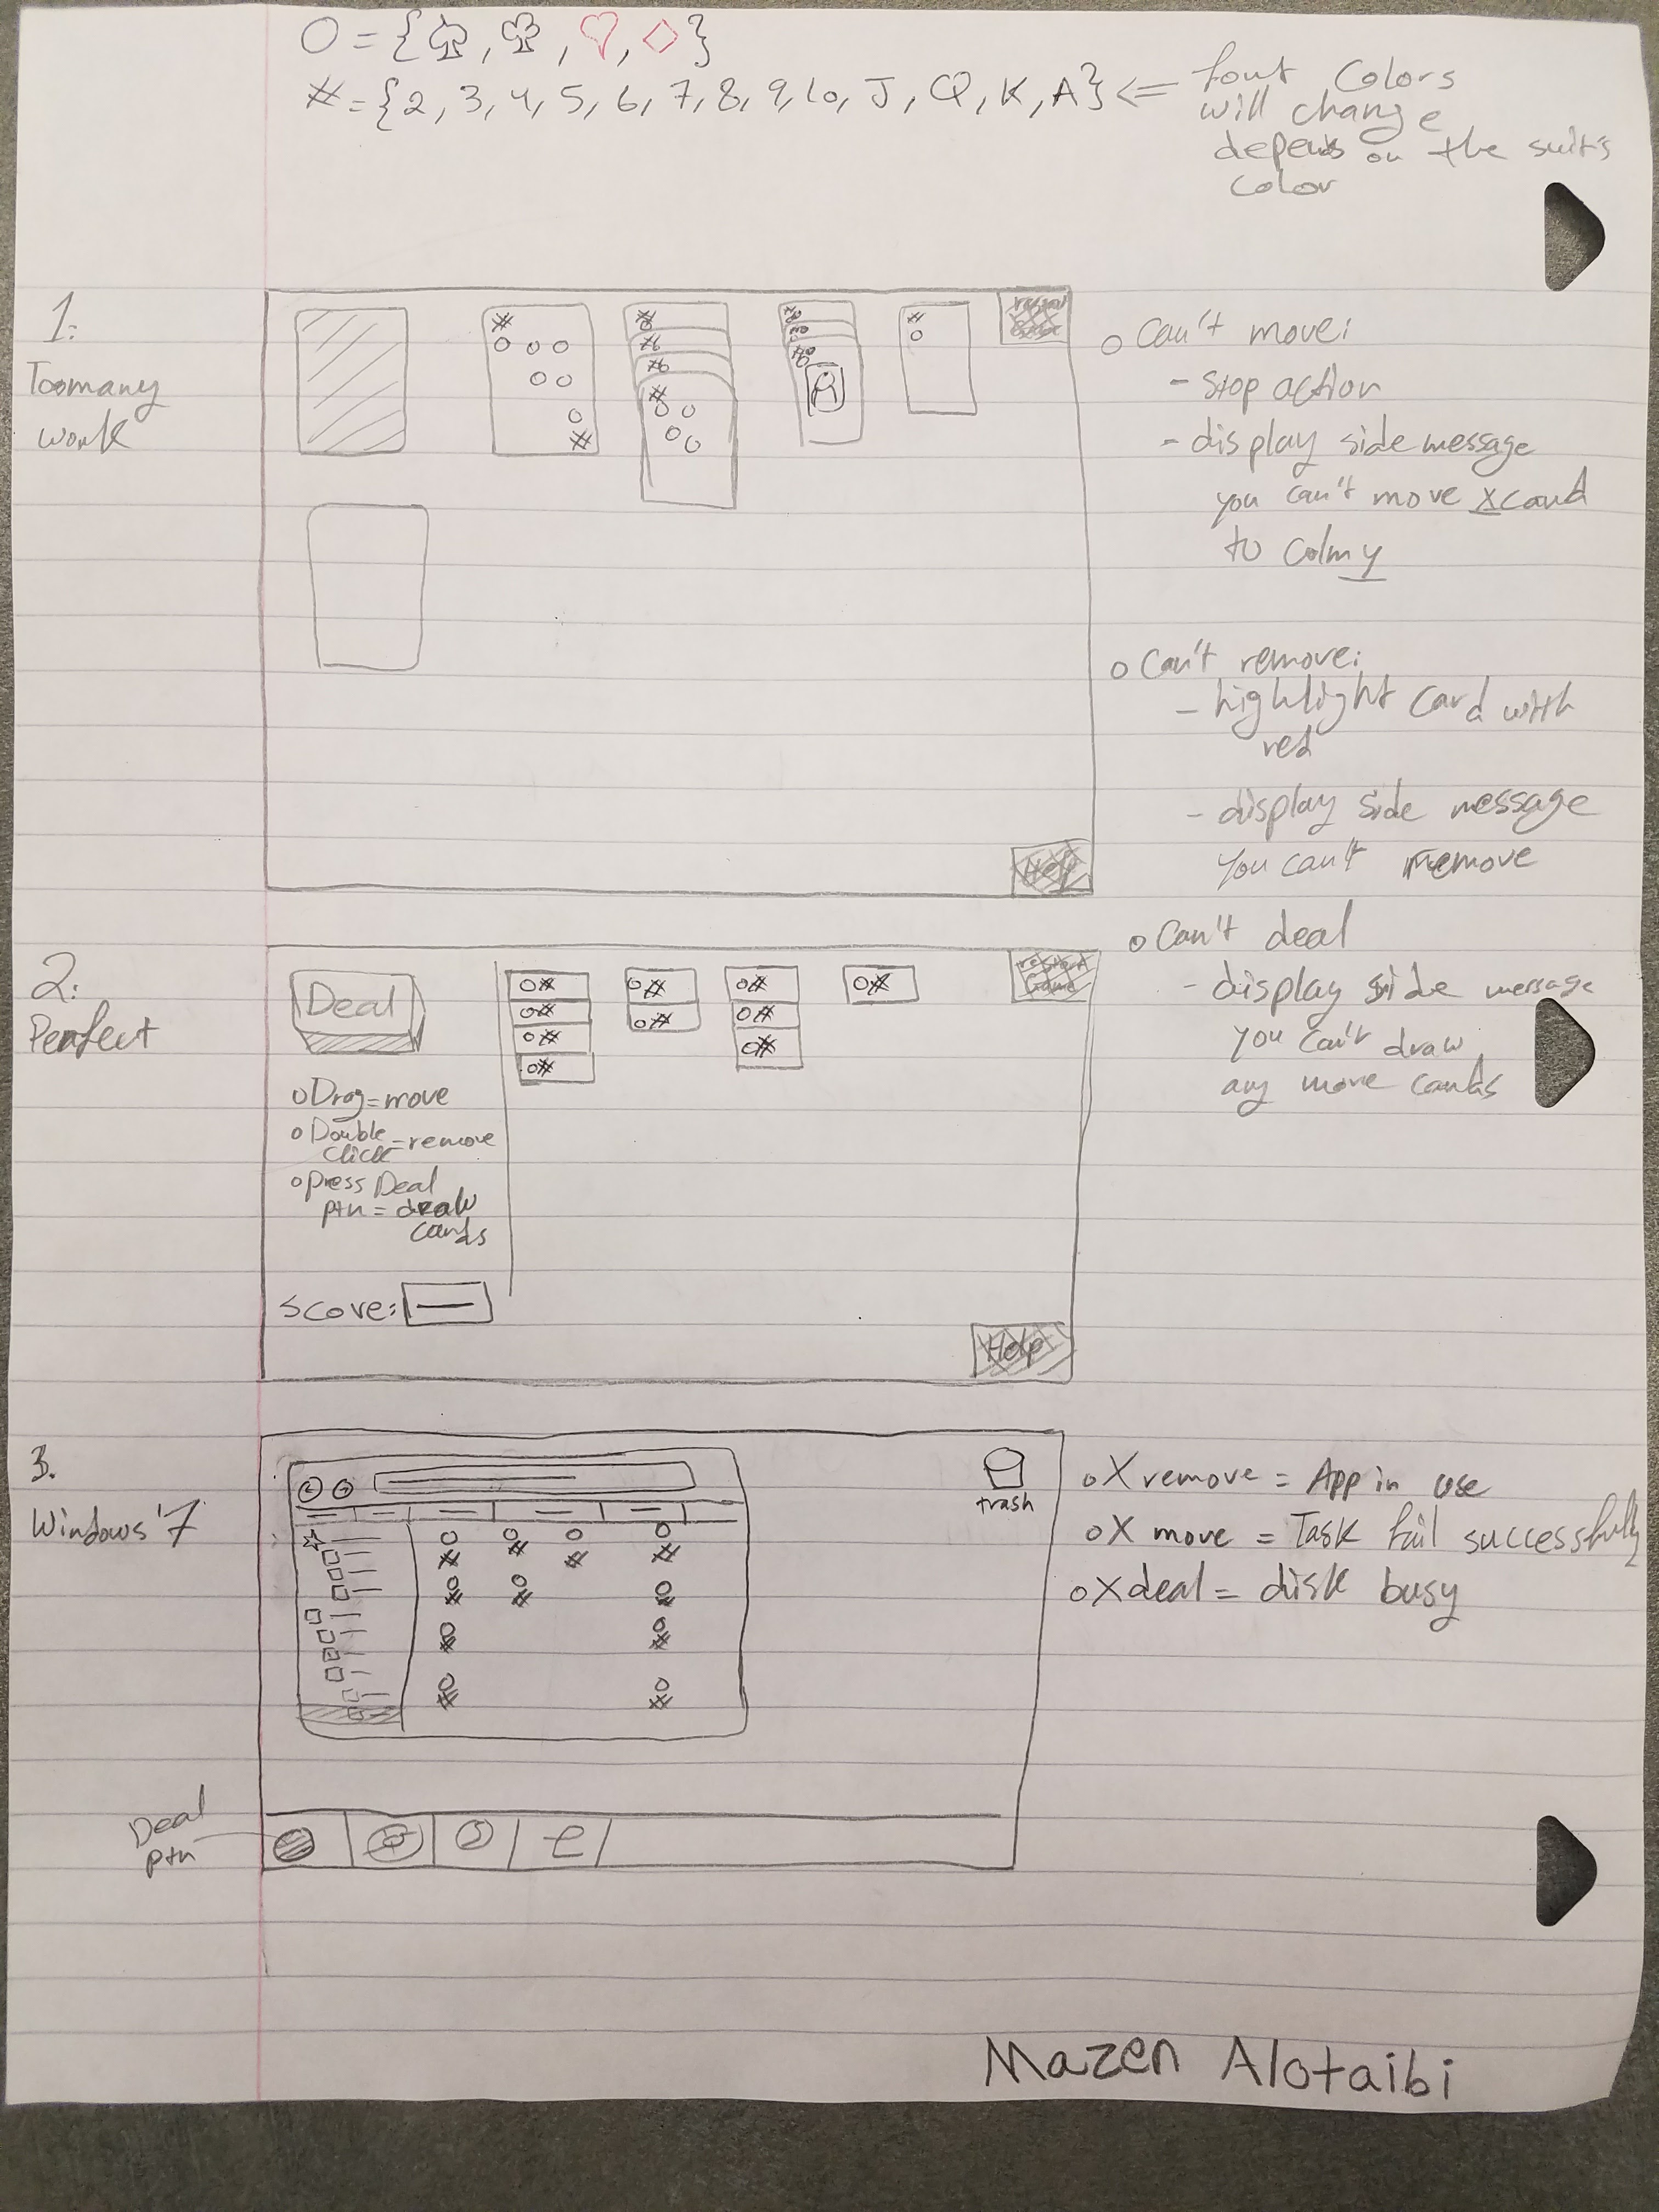 O = {♤, ♧, ♡, ◇}
# = {2, 3, 4, 5, 6, 7, 8, 9, 10, J, Q, K, A} <= font colors
will change
depends on the suit's
color
1:
Toomany
work
#
#
#
#
#
#
#
Help
o Can't move:
- stop action
- display side message
you can't move x card
to colm y
o Can't remove:
- highlight card with
red
- display side message
you can't remove
o Can't deal
- display side message
you can't draw
any more cards
2:
Perfect
Deal
O# O# O# O#
O# O# O#
O# O#
O#
restart
Game
o Drag = move
o Double
click = remove
o press Deal
ptn = draw
cards
Score: —
Help
3.
Windows '7
trash
# # # #
# # #
# #
# #
Deal
ptn
e
o X remove = App in use
o X move = Task fail successfully
o X deal = disk busy
Mazen Alotaibi